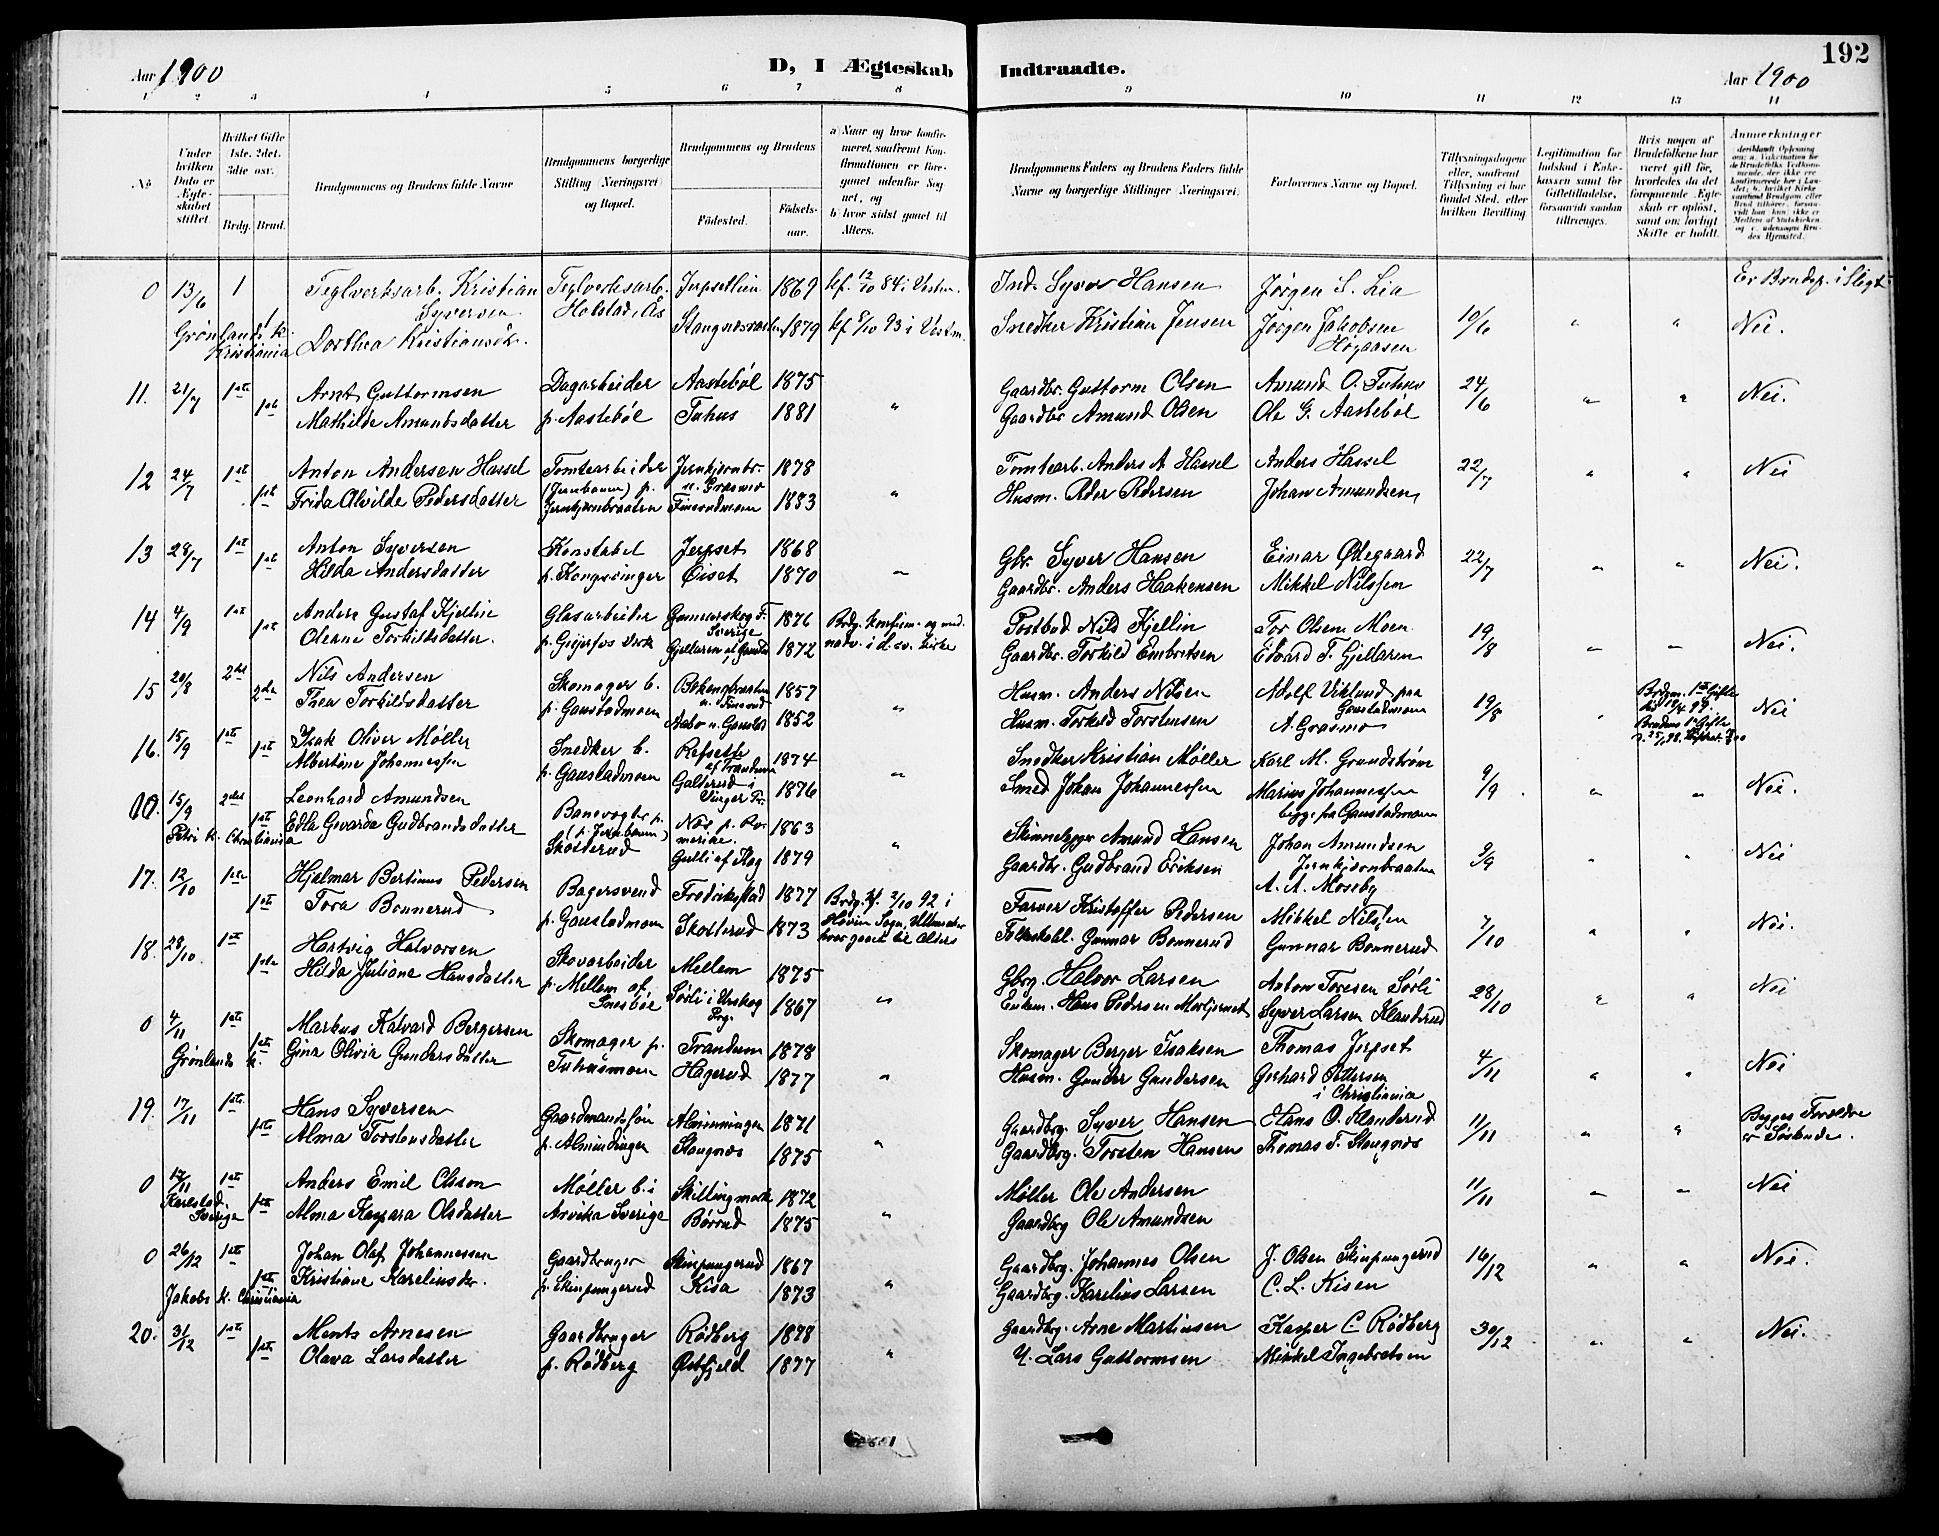 192
Aar 1900
D, I Ægteskab Indtraadte.
Aar 1900
1 2 3 4 5 6 7 8 9 10 11 12 13 14
No
Under hvilken Dato er Ægteskabet stiftet
Hvilket Gifte 1ste. 2det. 3die osv.
Brdg. Brud.
Brudgommens og Brudens fulde Navne
Brudgommens borgerlige Stilling (Næringsvei) og Bopæl.
Brudgommens og Brudens
Födested.
Födselsaar.
a) Naar og hvor konfirmeret, saafremt Konfirmationen er foregaaet udenfor Sognet, og
b) hvor sidst gaaet til Alters.
Brudgommens Faders og Brudens Faders fulde Navne og borgerlige Stillinger (Næringsvei)
Forlovernes Navne og Bopæl.
Tillysningsdagene eller, saafremt Tillysning ei har fundet Sted, efter hvilken Bevilling
Legitimation for Indskud i Enkekassen samt for Giftetilladelse, forsaavidt saadan tiltrænges.
Hvis nogen af Brudefolkene har været gift för, hvorledes da det foregaaende Ægteskab er oplöst, samt om lovligt Skifte er holdt.
Anmerkninger
0 13/6 1 Teglverksarb. Kristian Teglverksarb. Jerpsetlien 1869 kf. 12/10 84 i Vestm. Inds. Syver Hansen Jørgen S. Lia Er Brudep. i Slegt
Syversen Holstad, Ås
Grønlands k. 1 Stangnæs 1879 kf 8/10 93 i Vestm. Snedker Kristian Jensen Jørgen Jakobsen 10/6 " " Nei.
Kristiania Dorthea Kristiansdtr. Høgaasen
11. 21/7 1ste Arnt Guttormsen Dagarbeider Aastebøl 1875 Gaardbr. Guttorm Olsen Amund O. Tuhus 24/6 " " Nei.
1ste Mathilde Amundsdatter p. Aastebøl Tuhus 1881 " Gaardbr Amund Olsen Ole G. Aastebøl
12 24/7 1ste Anton Andersen Hassel Tomtearbeider Jernkjernbr. 1878 Tomtearb. Anders A Hassel Anders Hassel 22/7 " " Nei
1ste Frida Alvilde Pedersdatter (Jernbanen) p. u. Græsmo
Jernkjernbraaten Finsrudmoen 1883 " Husm. Peder Pedersen Johan Amundsen
13 28/7 1ste Anton Syversen Konstabel Jerpset 1868 Gbr. Syver Hansen Einar Ødegaard 22/7 " " Nei.
1ste Hilda Andersdatter p. Kongsvinger Øiset 1870 " Gaardbr. Anders Haakensen Mikkel Nilssen
14 4/9 1ste Anders Gustaf Kjellin Glasarbeider Gunnarskog S. 1876 Brdg. konfirm. og Postbud Nils Kjellin Tor Olsen Moen 19/8 " " Nei.
Sverige
1ste Olerne Torkildsdatter. p. Gjellaren af 1872 i d. sv. kirke Gaardbr. Torkild Embretsen Edvard T. Gjellaren
15 20/8 2det Nils Andersen Skomager b. 1857 Husm. Anders Nilsen Adolf Viklund paa 19/8 " Brdgm. 1ste Gifte Nei
2det Thea Torkildsdatter p. Gaustadmoen 1852 " Husm. Torkild Torstensen Gaustadmoen Brudens 1ste Gifte
A. Græsmo
16. 15/9 1ste Isak Oliver Møller Snedker b. Refsette 1874 Snedker Kristian Møller Karl M. Grundstrøm 9/9 " " Nei.
1ste Albertine Johannessen p. Gaustadmoen af Trandum
Galterud i Vinger Pr. 1876 " Smed Johan Johannessen Marius Johannessen
begge fra Gaustadmoen
0. 15/9 2det Leonhard Amundsen Banevogter p. Næs p. Ro- 1863 Skinnelægger Amund Hansen Johan Amundsen 9/9 " " Nei
Petri k. Christiania 1ste Edla Gevarda Gudbrandsdatter (p. Jernbanen) merike.
Skotterud Gulli af Skog 1879 " Gaardbr. Gudbrand Eriksen Jernkjernbraaten
A. A. Moseby
17. 12/10 1ste Hjalmar Bertinus Pedersen Bagersvend Fredrikstad 1877 Brdg. kf. 2/10 92 i Farver Kristoffer Pedersen Mikkel Nilssen 7/10 " " Nei.
1ste Tora Bonnerud p. Gaustadmoen Skotterud 1873 Hovin Sogn, Ullensaker Folkeskol. Gunnar Bonnerud Gunnar Bonnerud
hvor gaaet til Alters
18. 28/10 1ste Hartvig Halvorsen Skovarbeider Mellem 1875 Gbrg. Halvor Larsen Anton Toresen Sørli 28/10 " " Nei
1ste Hilda Juliane Hansdatter p. Mellem af Snesbøe Sørli i Urskog Prg. 1867 " Enkem. Hans Pedersen Syver Larsen Klanderud
0 4/11 1ste Markus Kalvard Bergersen Skomager p. Trandum 1878 Skomager Berger Isaksen Thomas Jerpset 4/11 " " Nei
Grønlands k. 1ste Gina Olivia Gundersdatter Tuhusmoen Hagerud 1877 " Husm. Gunder Gundersen Gerhard Pettersen
i Christiania
19. 17/11 1ste Hans Syversen Gaardmandssøn Alminningen 1871 Gaardbrg. Syver Hansen Hans O. Klanderud 11/11 " " Begges Forældre
1ste Alma Torstensdatter p. Almindingen Stangnæs 1875 " Gaardbrg. Torsten Hansen Thomas T. Stangnæs er Søskende.
0 17/11 1ste Anders Emil Olsson Møller b. i Skillingmark 1872 Møller Ole Andersen 11/11 " " Nei
Karlstad Sverige 1ste Alma Kaspara Olsdatter Arvika Sverige Børrud 1875 " Gaardbrg Ole Amundsen
0 26/12 1ste Johan Olaf Johannessen Gaardbruger Skinpungerud 1867 Gaardbrg. Johannes Olsen J. Olsen Skinpungerud 16/12 " " Nei.
1ste Kristiane Karelinsdtr. p. Skinpungerud Kisa 1873 " Gaardbrg. Karelius Larsen C. L. Kisen
Jakobs k. Christiania
20. 31/12 1ste Ments Arnesen Gaardbruger Rødberg 1878 Gaardbrg. Arne Martinsen Kasper C Rødberg 30/12 " " Nei.
1ste Olava Larsdatter p. Rødberg Østfjeld 1877 " Lars Guttormsen Mikkel Ingebretsen